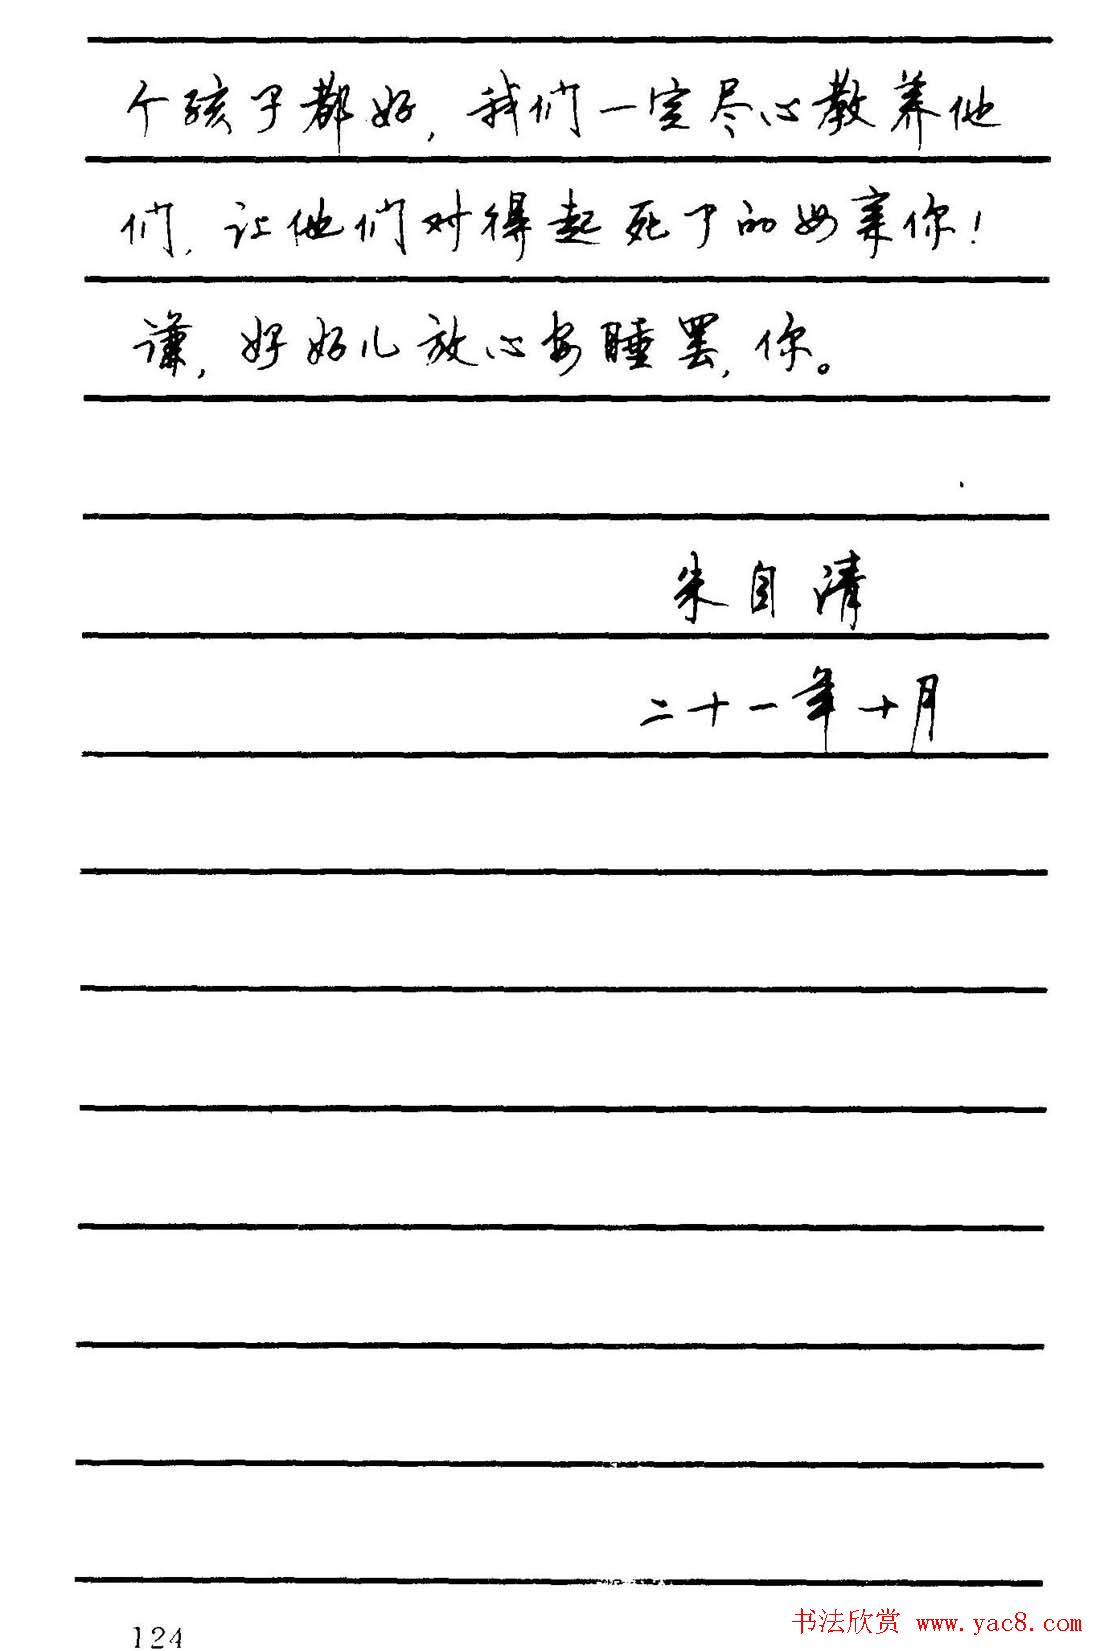 个孩子都好，我们一定尽心教养他
们，让他们对得起死了的母亲你！
谦，好好儿放心安睡罢，你。
朱自清
二十一年十月
124
书法欣赏 www.yac8.com